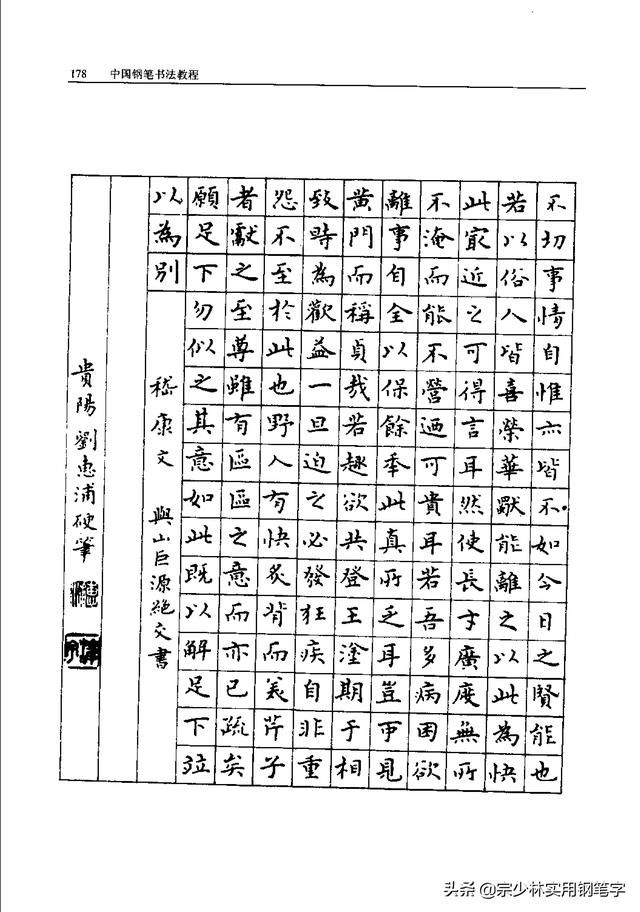 178 中国钢笔书法教程
不切事情自惟亦皆不如今日之賢能也
若以俗人皆喜榮華獨能離之以此為快
此最近之可得言耳然使長才廣度無所
不淹而能不營迺可貴耳若吾多病困欲
離事自全以保餘年此真所乏耳豈可見
黃門而稱貞哉若趣欲共登王塗期于相
致時為歡益一旦迫之必發狂疾自非重
怨不至於此也野人有快炙背而美芹子
者獻之至尊雖有區區之意而亦已疏矣
願足下勿似之其意如此既以解足下竝
以為別 嵇康文 與山巨源絕交書
貴陽劉惠浦硬筆
头条 @宗少林实用钢笔字